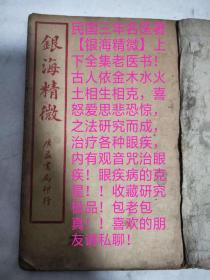 民国三年名医著
【银海精微】上
下全集老医书！
古人依金木水火
土相生相克，喜
怒爱思悲恐惊，
之法研究而成，
治疗各种眼疾，
内有观音咒治眼
疾！眼疾病的克
星！！收藏研究
极品！包老包
真！！喜欢的朋
友请私聊！
銀海精微
廣益書局印行